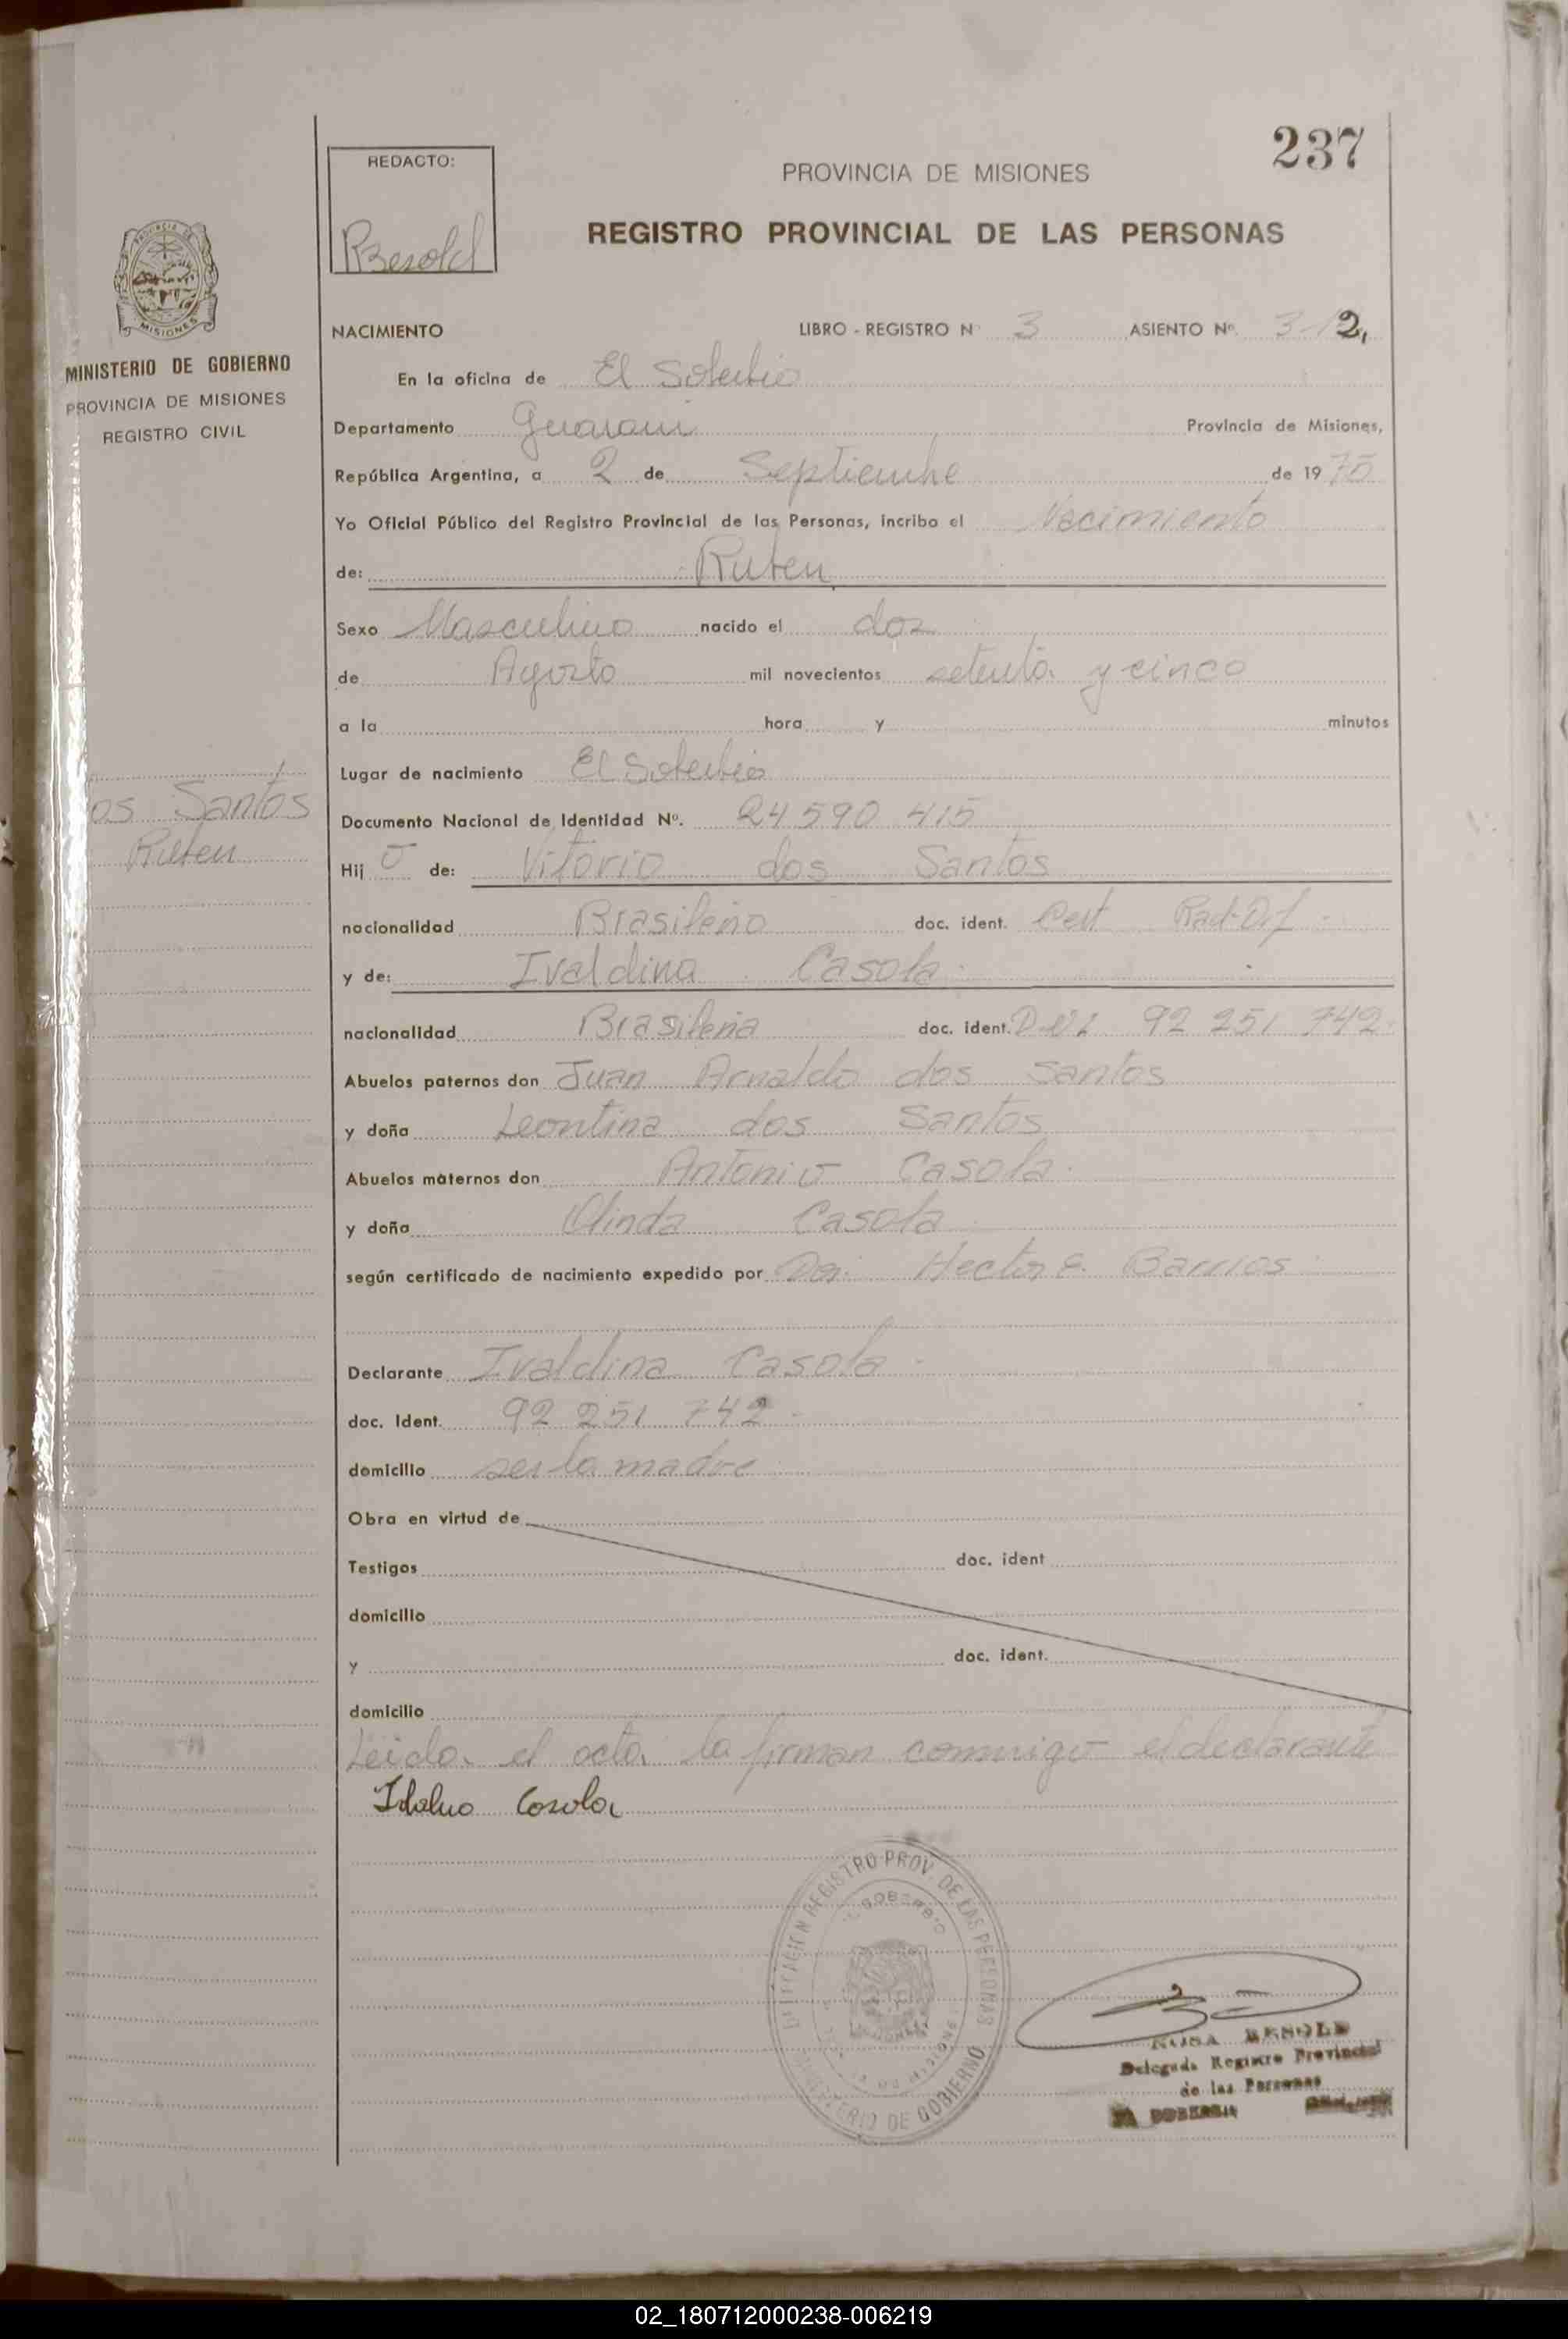 237
REDACTO:
Besold
PROVINCIA DE MISIONES
REGISTRO PROVINCIAL DE LAS PERSONAS
PROVINCIA DE
MISIONES
MINISTERIO DE GOBIERNO
PROVINCIA DE MISIONES
REGISTRO CIVIL
NACIMIENTO LIBRO - REGISTRO Nº 3 ASIENTO Nº
En la oficina de El Soberbio
Departamento Guarani Provincia de Misiones,
República Argentina, a 2 de Septiembre de 1975
Yo Oficial Público del Registro Provincial de las Personas, incribo el Nacimiento
de: Ruben
Sexo Masculino nacido el dos
de Agosto mil novecientos setenta y cinco
a la hora y minutos
Lugar de nacimiento El Soberbio
os Santos
Ruben
Documento Nacional de Identidad Nº. 24 590 415
Hij o de: Vitorio dos Santos
nacionalidad Brasileño doc. ident. Cert
y de: Ivaldina Casola
nacionalidad Brasileña doc. ident. DNI 92 251 742
Abuelos paternos don Juan Arnaldo dos Santos
y doña Leontina dos Santos
Abuelos maternos don Antonio Casola
y doña Olinda Casola
según certificado de nacimiento expedido por Hector E. Barrios
Declarante Ivaldina Casola
doc. Ident. 92 251 742
domicilio ser la madre
Obra en virtud de
Testigos doc. ident
domicilio
y doc. ident.
domicilio
Leida el acta la firman conmigo el declarante
Casola
DELEGACION REGISTRO PROV. DE LAS PERSONAS
MINISTERIO DE GOBIERNO
ROSA BESOLD
Delegada Registro Provincial
de las Personas
02_180712000238-006219